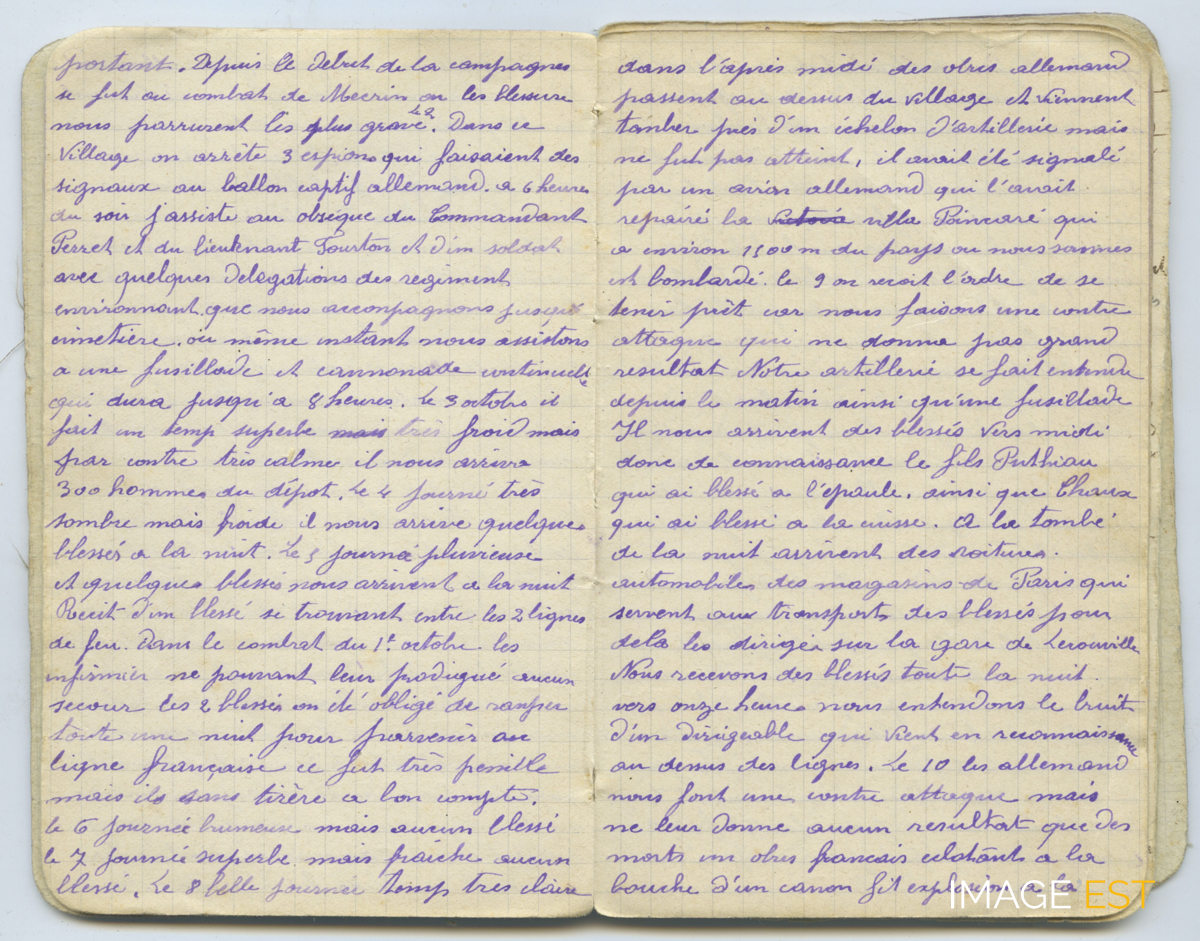 portant. Depuis le debut de la campagnes
se fut au combat de Mecrin ou les blessure
nous parrurent les plus grave. Dans ce
village on arrête 3 espions qui faisaient des
signaux au ballon captif allemand. a 6 heures
du soir j'assiste au obsèque du Commandant
Perret et du lieutenant Tourton et d'un soldat
avec quelques delegations des regiment
environnant, que nous accompagnons jusqu'
cimetière. au même instant nous assistons
a une fusillade et cannonade continuelle
qui dura jusqu'a 8 heures. Le 3 octobre il
fait un temp superbe mais très froid mais
par contre très calme il nous arriva
300 hommes du dépot. Le 4 journé très
sombre mais froide il nous arrive quelques
blessés a la nuit. Le 5 journée pluvieuse
et quelques blessés nous arrivent a la nuit
Recit d'un blessé se trouvant entre les 2 lignes
de feu. Dans le combat du 1er octobre les
infirmier ne pouvant leur prodigué aucun
secour les 2 blessés on été obligé de ramper
toute une nuit pour parvenir au
ligne française ce fut très penible
mais ils sans tirère a bon compte.
le 6 journée brumeuse mais aucun blessé
le 7 journée superbe mais fraiche aucun
blessé. Le 8 belle journée temp tres claire
dans l'après midi des obus allemand
passent au dessus du village et viennent
tomber près d'un échelon d'artillerie mais
ne fut pas atteint, il avait été signalé
par un avion allemand qui l'avait
repairé la villa Poincaré qui
a environ 1500 m du pays ou nous sommes
est bombardé. le 9 on recoit l'ordre de se
tenir prêt car nous faisons une contre
attaque qui ne donna pas grand
resultat Notre artillerie se fait entendre
depuis le matin ainsi qu'une fusillade
Il nous arrivent des blessés vers midi
donc de connaissance le fils Puthiau
qui ai blessé a l'épaule. ainsi que Chaux
qui ai blessé a la cuisse. A la tombé
de la nuit arrivent des voitures.
automobiles des magasins de Paris qui
servent aux transports des blessés pour
dela les dirigés sur la gare de Lerouville
Nous recevons des blessés toute la nuit.
vers onze heures nous entendons le bruit
d'un dirigeable qui vient en reconnaissance
au dessus des lignes. Le 10 les allemand
nous font une contre attaque mais
ne leur donne aucun resultat que des
morts un obus francais eclatant a la
bouche d'un canon fit explosion a la
IMAGE EST